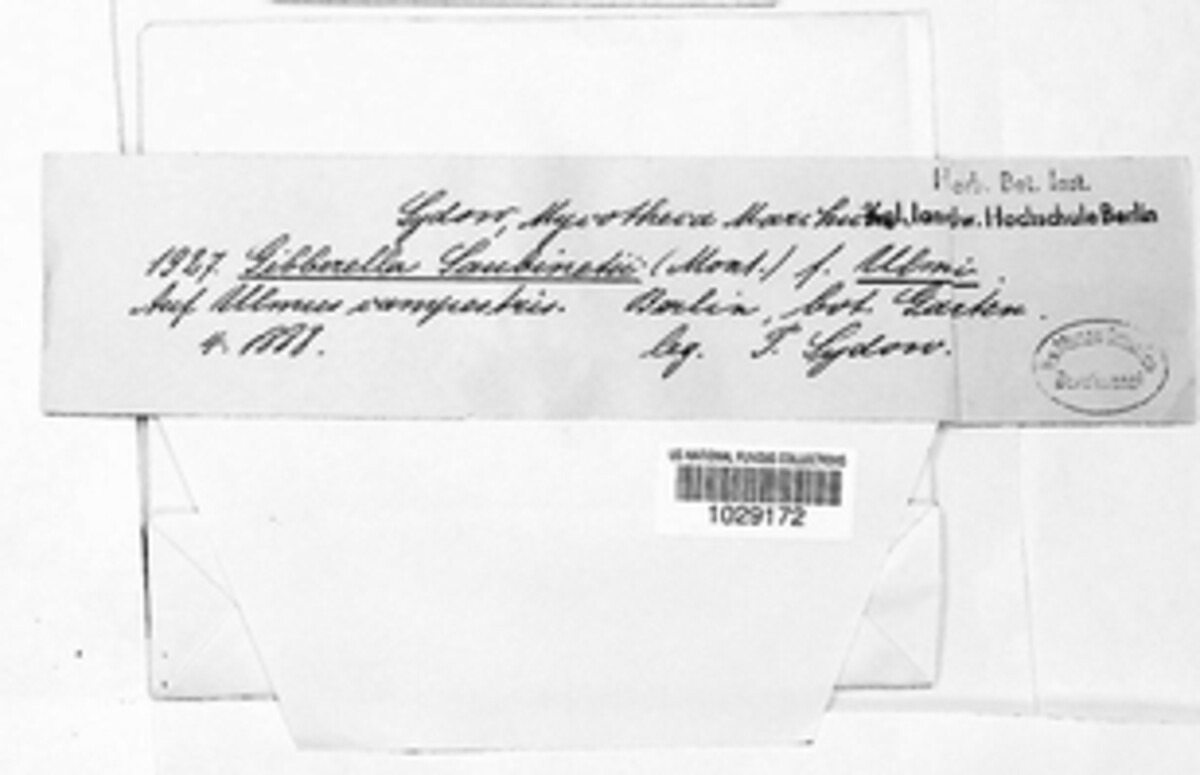 Herb. Bot. Inst.
Kgl. landw. Hochschule Berlin
Sydow, Mycotheca
1927. Gibberella Saubinetii (Mont.) f. Ulmi.
Auf Ulmus campestris. Berlin, bot. Garten.
4. 1888. leg. P. Sydow.
US NATIONAL FUNGUS COLLECTIONS
1029172